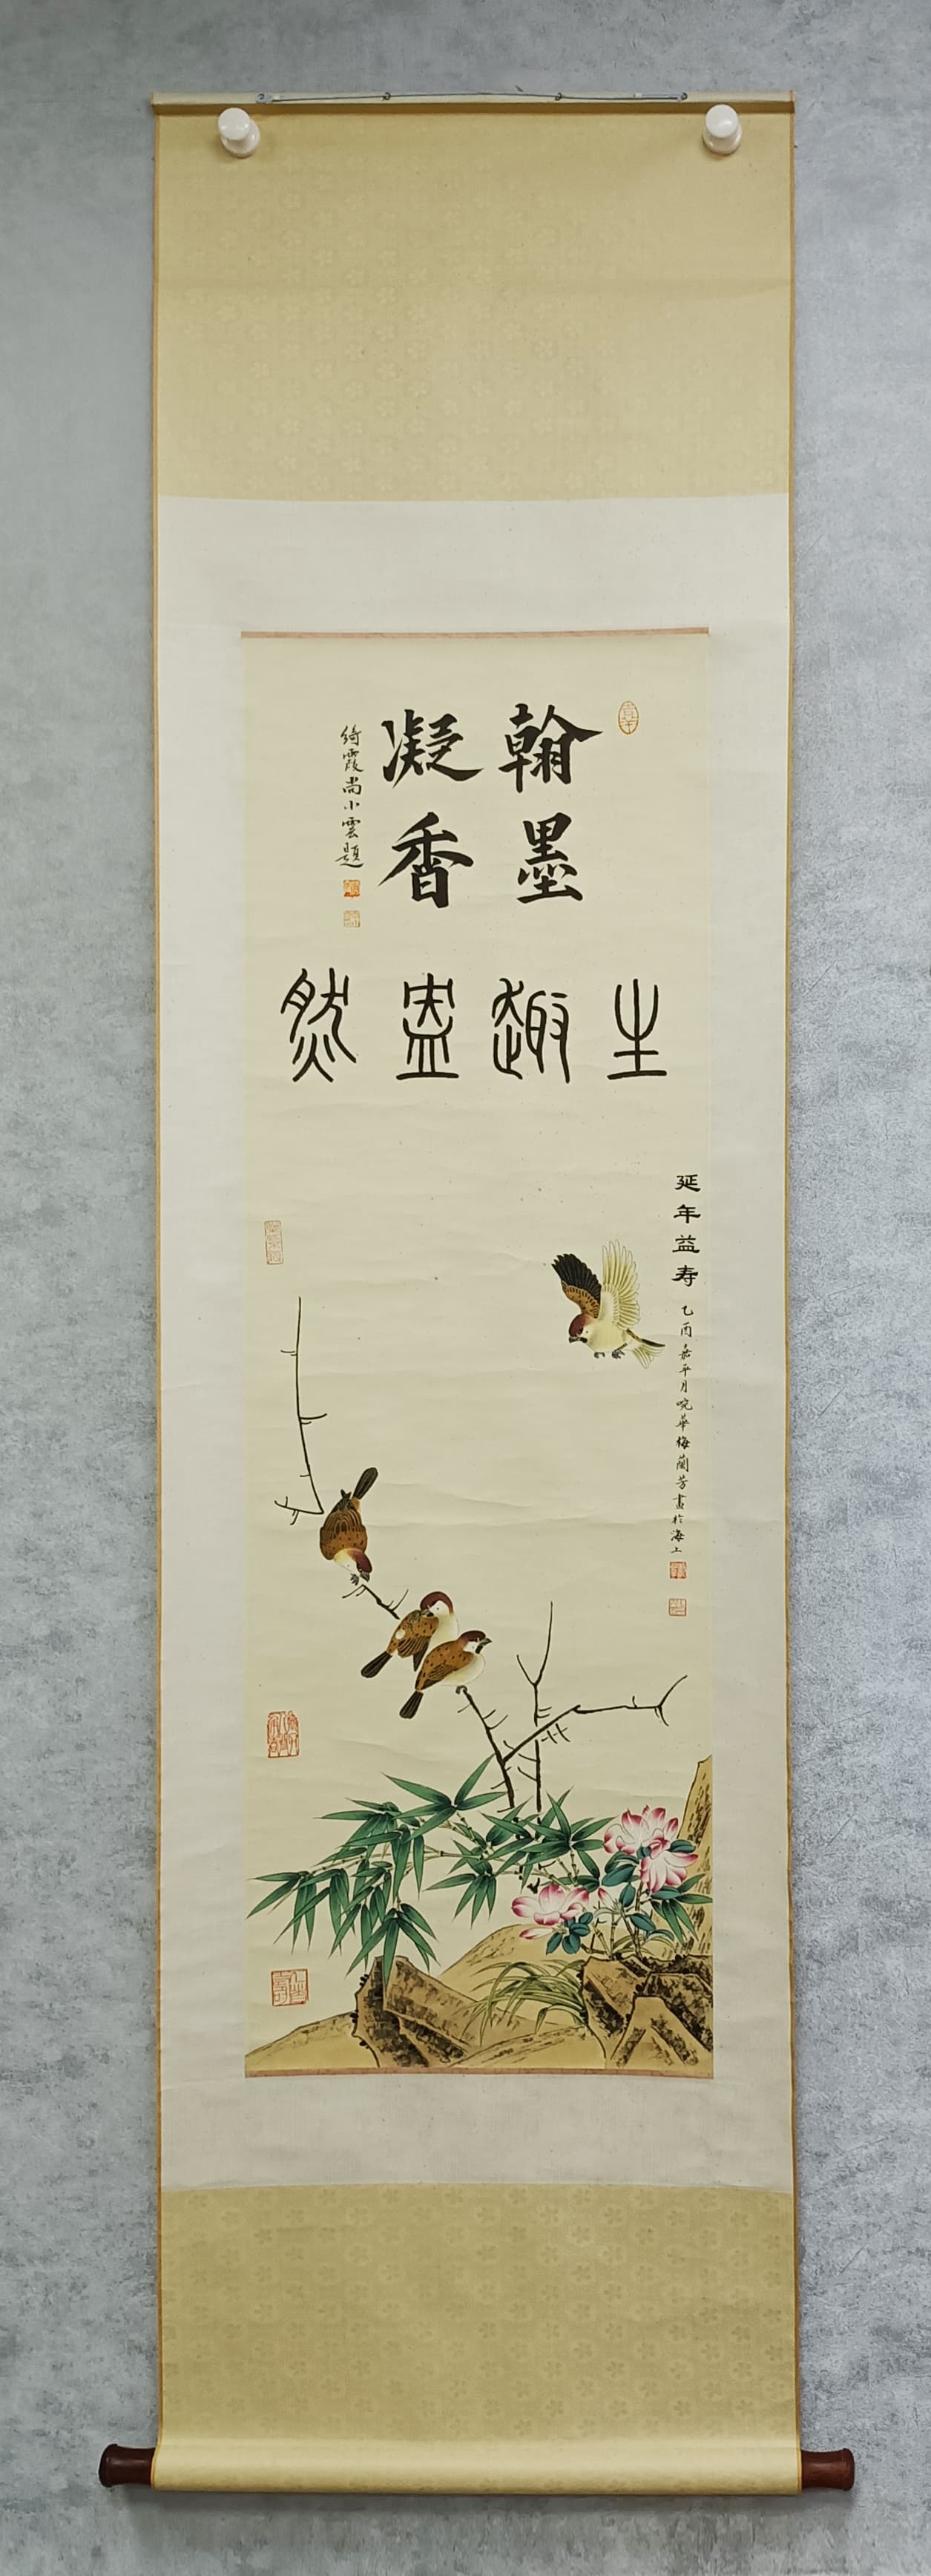 翰墨
凝香
綺霞尚小雲題
生趣盎然
延年益寿
乙酉嘉平月畹華梅蘭芳畫於海上